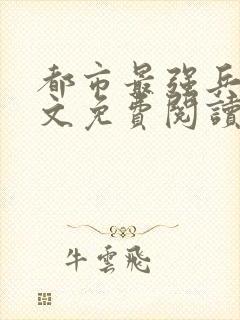 都市最強兵
文免費閱讀
牛雲飛